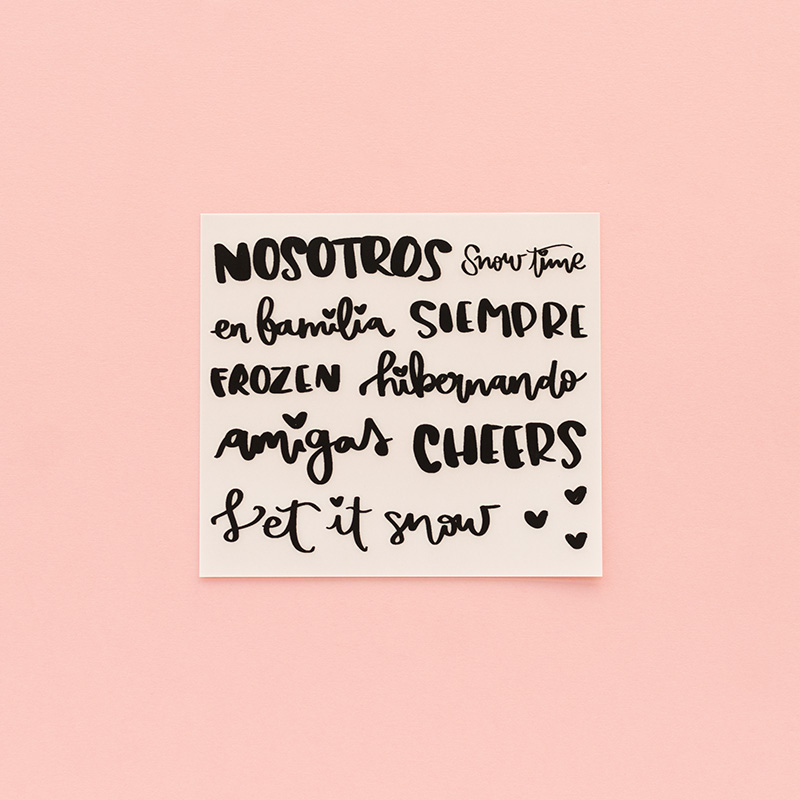 NOSOTROS Snow time
en familia SIEMPRE
FROZEN hibernando
amigas CHEERS
Let it snow